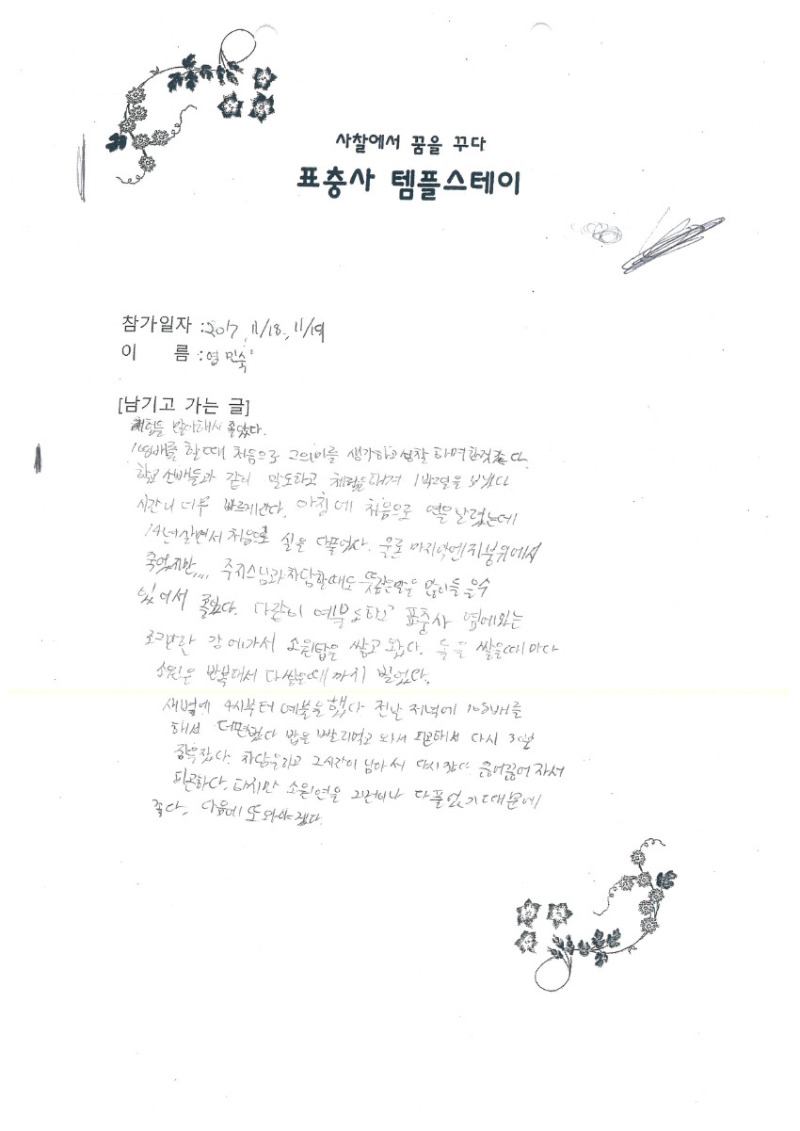 사찰에서 꿈을 꾸다
표충사 템플스테이
참가일자 : 2017, 11/18, 11/19
이 름 : 염민숙
[남기고 가는 글]
체험을 많이해서 좋았다.
108배를 할때 처음으로 그의미를 생각하고 성찰 하며한것 같다.
학교 선배들과 같이 말도하고 체험을 하며 1박2일을 보냈다
시간이 너무 빠르게간다. 아침에 처음으로 연을 날렸는데
14년살면서 처음으로 실을 다풀었다. 물론 마지막엔 지붕위에서
죽었지만,,,, 주지스님과 차담할때도 뜻깊은말을 많이들을수
있어서 좋았다. 다같이 예불도하고 표충사 옆에있는
조그만한 강에가서 소원탑을 쌓고 왔다. 돌을 쌓을때마다
소원을 반복해서 다쌓을때까지 빌었다.
새벽에 4시부터 예불을했다 전날 저녁에 108배를
해서 더편했다 밥을 빨리먹고 와서 피곤해서 다시 3시간
잠을잤다. 차담을하고 2시간이 남아서 다시 잤다. 끊어끊어 자서
피곤하다. 하지만 소원연을 2번이나 다풀었기때문에
좋다. 다음에 또와야겠다.